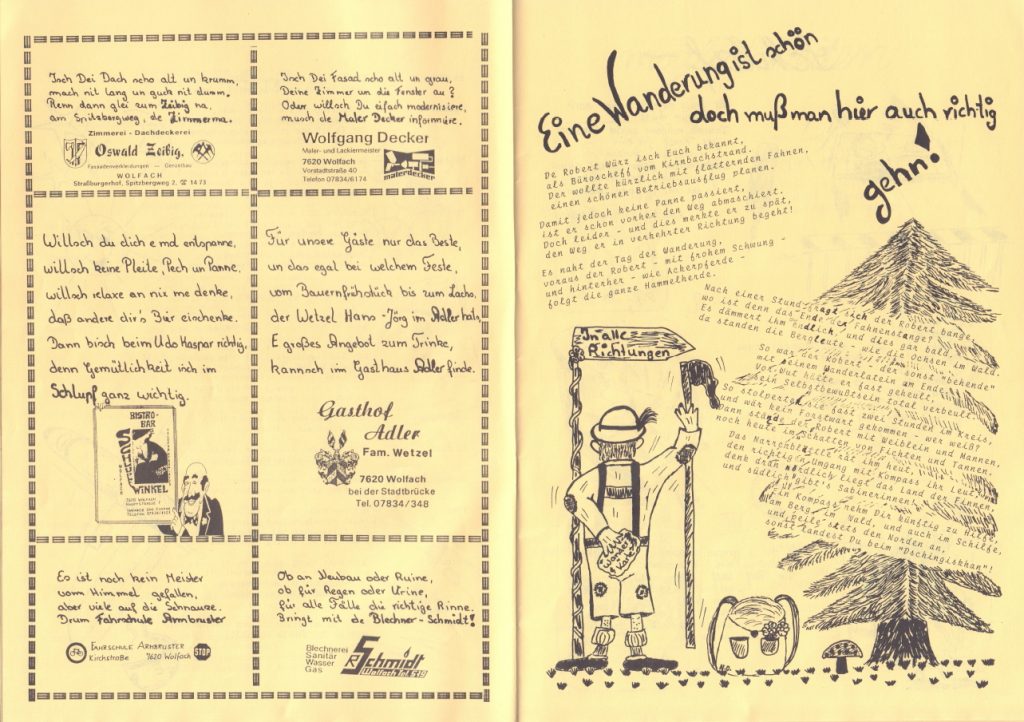 Isch Dei Dach scho alt un krumm,
mach nit lang un guck nit dumm.
Renn dann glei zum Zeibig na,
am Spitzbergweg, de Zimmerma.
Zimmerei - Dachdeckerei
Oswald Zeibig.
Fassadenverkleidungen — Gerüstbau
WOLFACH
Straßburgerhof, Spitzbergweg 2, ☎ 14 73
Isch Dei Fasad scho alt un grau,
Deine Zimmer un die Fenster au?
Oder willsch Du eifach modernisiere,
musch de Maler Decker informiere.
Wolfgang Decker
Maler- und Lackiermeister
7620 Wolfach
Vorstadtstraße 40
Telefon 07834/6174
malerdecker
Willsch du dich e mol entspanne,
willsch keine Pleite, Pech un Panne.
willsch relaxe an nix me denke,
daß andere dir's Bier eischenke.
Dann bisch beim Udo Haspar richtig,
denn Gemütlichkeit isch im
Schlupf ganz wichtig.
BISTRO-
BAR
SCHLUPF
WINKEL
7620 WOLFACH
Für unsere Gäste nur das Beste,
un das egal bei welchem Feste,
vom Bauernfrühstück bis zum Lachs,
der Wetzel Hans-Jörg im Adler hats,
E großes Angebot zum Trinke,
kannsch im Gasthaus Adler finde.
Gasthof
Adler
Fam. Wetzel
7620 Wolfach
bei der Stadtbrücke
Tel. 07834/348
Es ist noch kein Meister
vom Himmel gefallen,
aber viele auf die Schnauze.
Drum Fahrschule Armbruster
FAHRSCHULE ARMBRUSTER
Kirchstraße 7620 Wolfach STOP
Ob an Neubau oder Ruine,
ob für Regen oder Urine,
für alle Fälle die richtige Rinne.
Bringt mit de Blechner-Schmidt!
Blechnerei
Sanitär
Wasser
Gas
R Schmidt
Wolfach Tel. 519
Eine Wanderung ist schön
doch muß man hier auch richtig
gehn!
De Robert Würz isch Euch bekannt,
als Büroscheff vom Kirnbachstrand.
Der wollte kürzlich mit flatternden Fahnen,
einen schönen Betriebsausflug planen.
Damit jedoch keine Panne passiert,
ist er schon vorher den Weg abmaschiert.
Doch leider - und dies merkte er zu spät,
den Weg er in verkehrter Richtung begeht!
Es naht der Tag der Wanderung,
voraus der Robert - mit frohem Schwung -
und hinterher - wie Ackerpferde -
folgt die ganze Hammelherde.
Nach einer Stund fragt sich der Robert bange,
wo ist denn das Ende der Fahnenstange?
Es dämmert ihm endlich, und dies gar bald,
da standen die Bergleute - wie die Ochsen im Wald.
So war der Robert - der sonst "behende"
mit seinem Wanderlatein am Ende.
Vor Wut hätte er fast geheult,
sein Selbstbewußtsein total verbeult.
So stolperten sie fast zwei Stunden im Kreis,
und wär kein Forstwart gekommen - wer weiß?
Dann stände der Robert mit Weiblein und Mannen,
noch heute im Schatten von Fichten und Tannen.
Das Narrenblättle rät ihm heut,
den richtigen Umgang mit Kompass ihr Leut,
denk dran nördlich liegt das Land der Finnen,
und südlich gibt's Sabinerinnen!
Ein Kompass nehm Dir künftig zu Hilfe,
am Berg, im Wald, und auch im Schilfe,
und peile stets den Norden an,
sonst landest Du beim "Dschingiskhan"!
In alle
Richtungen
Wander
Karte